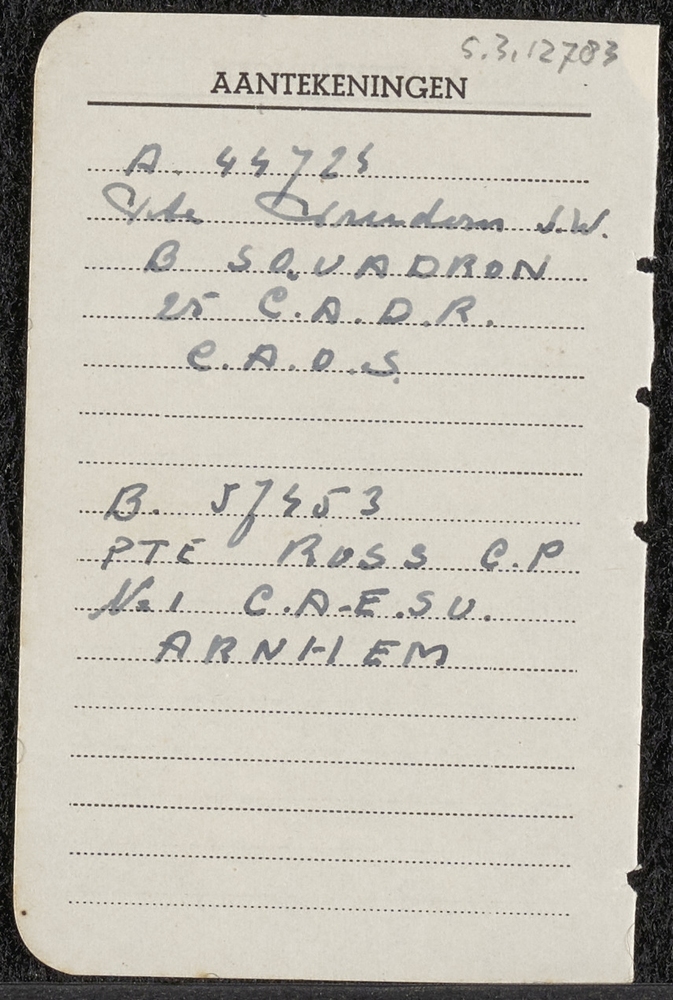 S.3.12783
AANTEKENINGEN
A. 44724
Pte J.W.
B SQUADRON
25 C.A.D.R.
C.A.O.S.
B. 57453
PTE ROSS C.P
No 1 C.A.E.S U.
ARNHEM